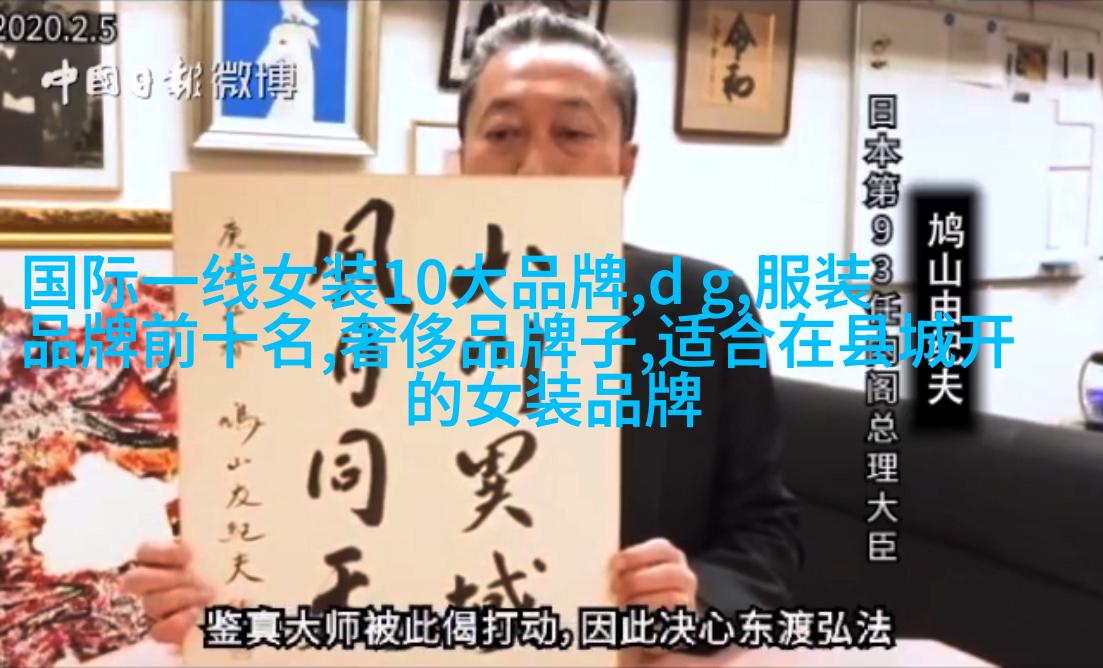 2020.2.5
中國日報微博
令和
日本第93任内阁总理大臣
鸠山由纪夫
国际一线女装10大品牌,d g,服装
品牌前十名,奢侈品牌子,适合在县城开
的女装品牌
山
異域
風月同天
鳩山友紀夫
鉴真大师被此偈打动,因此决心东渡弘法